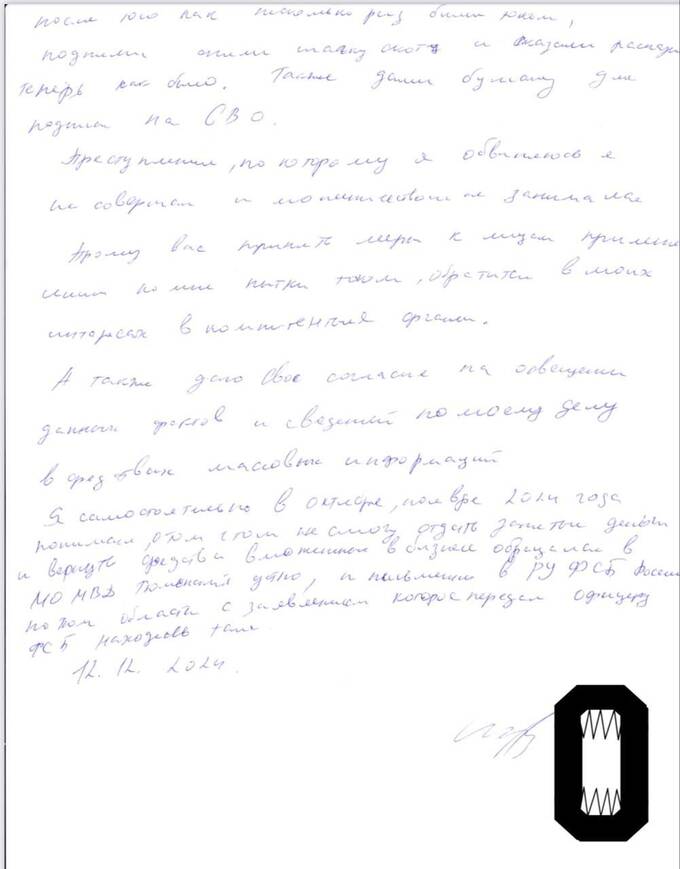 после чего как несколько раз били током,
подписи
теперь как было. Также дали бумагу для
подписи на СВО.
Преступления, по которому я обвиняюсь я
не совершал и мошенничеством не занимался
Прошу вас принять меры к лицам
пытки током, обратится в моих
интересах в органы.
А также даю свое согласие на освещении
данных фактов и сведений по моему делу
в средствах массовых информаций
Я самостоятельно в октябре, ноябре 2024 года
понимая, о том что не смогу отдать занятые деньги
и вернуть средства вложенные в бизнес обращался в
МО МВД устно, и письменно в РУ ФСБ России
по области с заявлением которое передал офицеру
ФСБ находясь там
12.12. 2024.